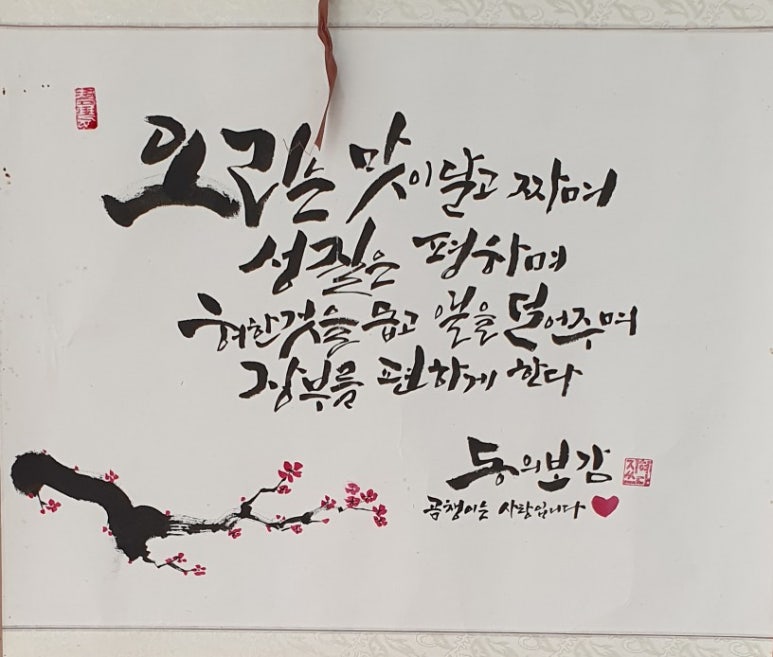 오리는 맛이 달고 짜며
성질은 평하며
허한것을 돕고 열을 덜어주며
장부를 편하게 한다
동의보감
곰챙이는 사랑입니다